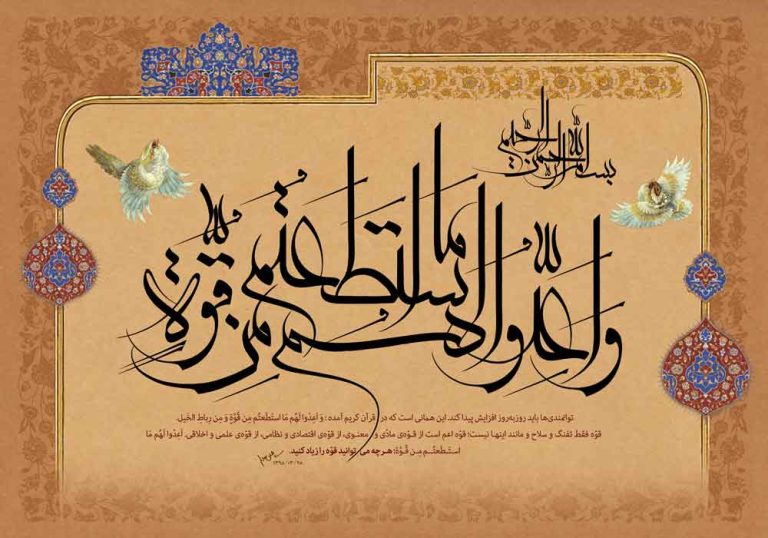 بسم الله الرحمن الرحیم
وَاَعِدّوا لَهُم مَا استَطَعتُم مِن قُوَّةٍ
توانمندی‌ها باید روزبه‌روز افزایش پیدا کند. این همانی است که در قرآن کریم آمده: وَ اَعِدّوا لَهُم مَا استَطَعتُم مِن قُوَّةٍ وَ مِن رِباطِ الخَیلِ.
قوّه فقط تفنگ و سلاح و مانند اینها نیست؛ قوّه اعم است از قوّه‌ی مادّی و معنوی، از قوّه‌ی اقتصادی و نظامی، از قوّه‌ی علمی و اخلاقی. اَعِدّوا لَهُم مَا
استَطَعتُم مِن قُوَّةٍ؛ هر چه می توانید قوّه را زیاد کنید.